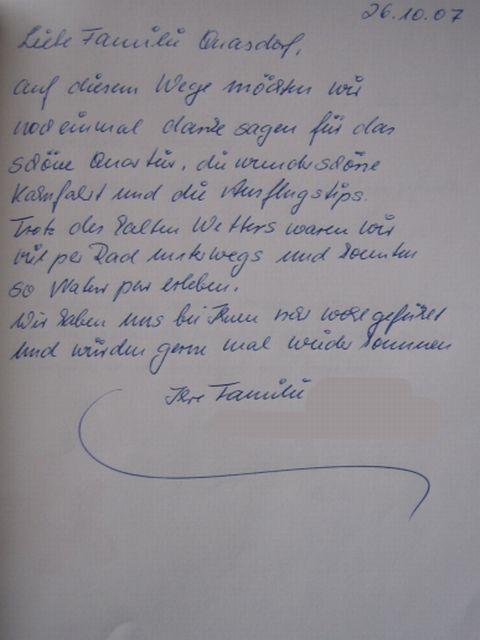 26.10.07
Liebe Familie Quasdorf,
auf diesem Wege möchten wir
noch einmal danke sagen für das
schöne Quartier, die wunderschöne
Kahnfahrt und die Ausflugstips.
Trotz des kalten Wetters waren wir
viel per Rad unterwegs und konnten
so Natur pur erleben.
Wir haben uns bei Ihnen sehr wohl gefühlt
und würden gern mal wieder kommen
Ihre Familie